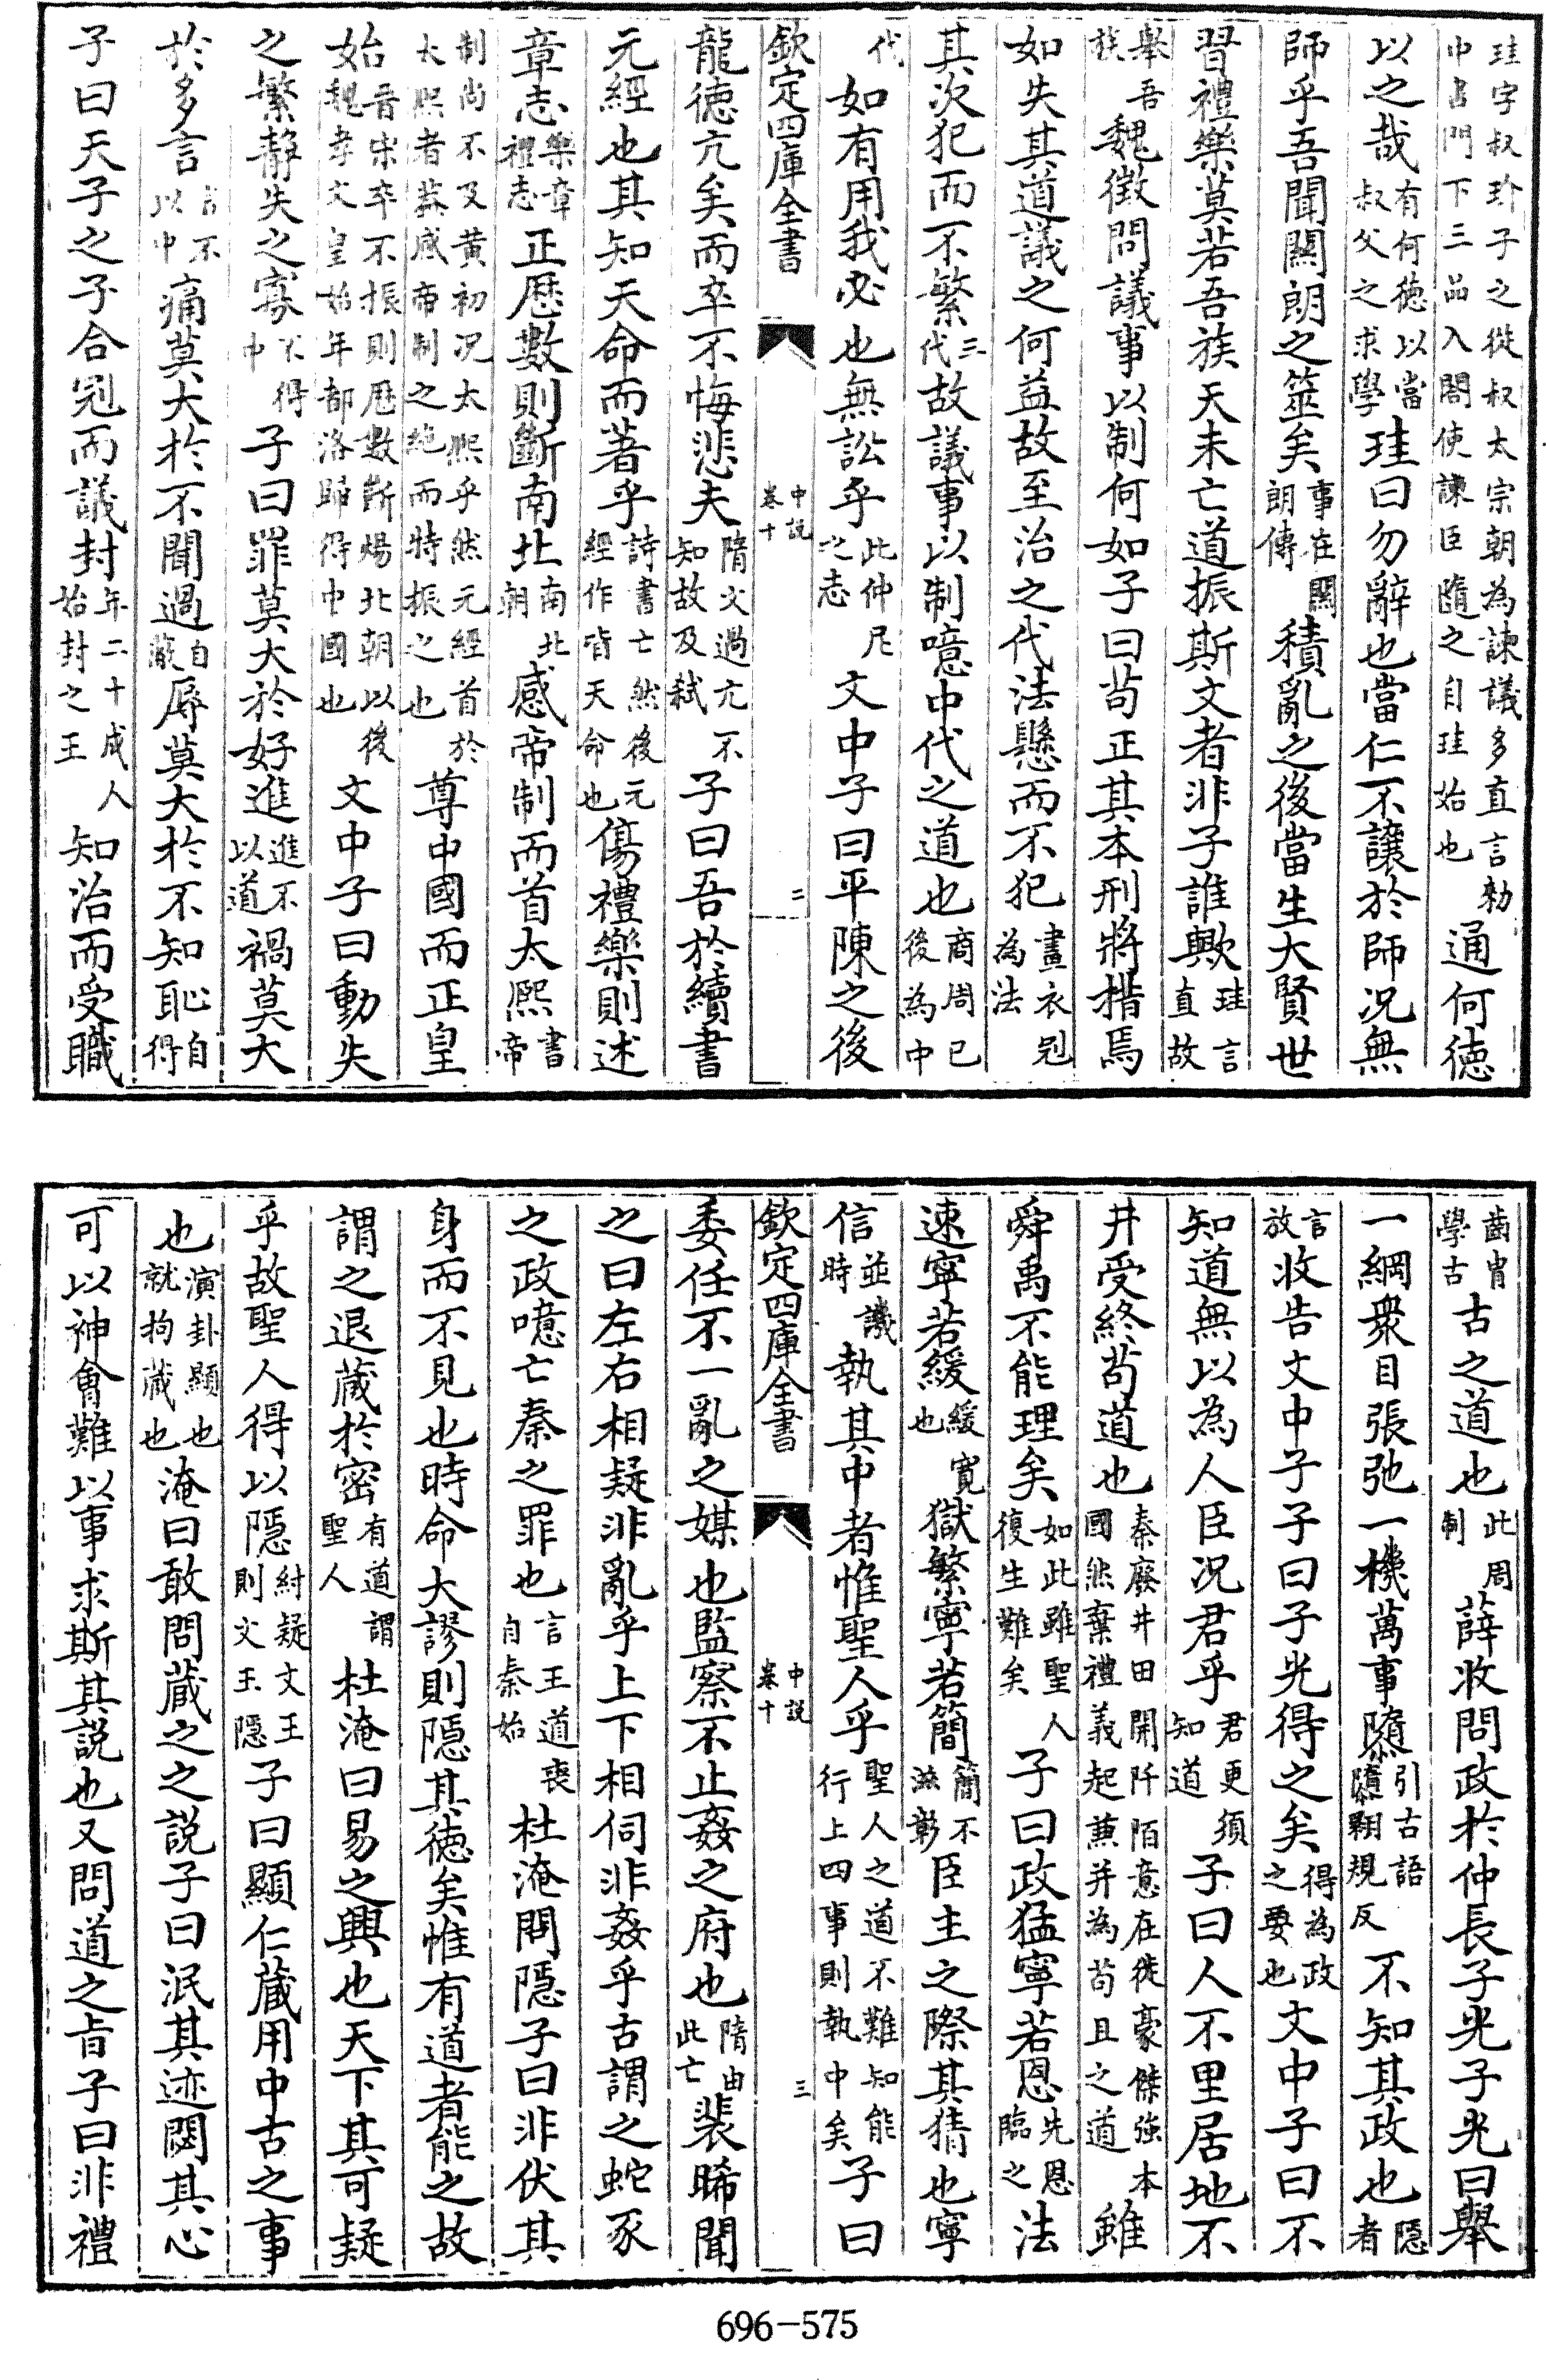 珪字叔玠子之從叔太宗朝為諫議多直言勑中書門下三品入閤使諫臣隨之自珪始也通何德
以之哉有何德以當叔父之求學珪曰勿辭也當仁不讓於師况無
師乎吾聞關朗之筮矣事在關朗傳積亂之後當生大賢世
習禮樂莫若吾族天未亡道振斯文者非子誰歟珪言直故
舉吾族魏徵問議事以制何如子曰苟正其本刑將措焉
如失其道議之何益故至治之代法懸而不犯畫衣冠為法
其次犯而不繁三代故議事以制噫中代之道也商周已後為中
代如有用我必也無訟乎此仲尼之志文中子曰平陳之後
欽定四庫全書 中說卷十 二
龍德亢矣而卒不悔悲夫隋文過亢不知故及弑子曰吾於續書
元經也其知天命而著乎詩書亡然後元經作皆天命也傷禮樂則述
章志樂章禮志正歴數則斷南北南北朝感帝制而首太熙書帝
制尚不及黃初况太熙乎然元經首於太熙者葢感帝制之絶而特振之也尊中國而正皇
始晉宋卒不振則歴數斷歸北朝以後魏孝文皇始年都洛歸得中國也文中子曰動失
之繁靜失之寡不得中子曰罪莫大於好進進不以道禍莫大
於多言言不以中痛莫大於不聞過自蔽辱莫大於不知恥自得
子曰天子之子合冠而議封年二十成人始封之王知治而受職
齒胄學古古之道也此周制薛收問政於仲長子光子光曰舉
一綱衆目張弛一機萬事隳引古語隳翾規反不知其政也隱者
言放收告文中子子曰子光得之矣得為政之要也文中子曰不
知道無以為人臣况君乎君更須知道子曰人不里居地不
井受終苟道也秦廢井田開阡陌意在從豪傑強本國然棄禮義起兼并為苟且之道雖
舜禹不能理矣如此雖聖人復生難矣子曰政猛寧若恩先恩臨之法
速寧若緩緩寬也獄繁寧若簡簡不滋彰臣主之際其猜也寧
信並議時執其中者惟聖人乎聖人之道不難知能行上四事則執中矣子曰
欽定四庫全書 中說卷十 三
委任不一亂之媒也監察不止姦之府也隋由此亡裴晞聞
之曰左右相疑非亂乎上下相伺非姦乎古謂之蛇豕
之政噫亡秦之罪也言王道喪自秦始杜淹問隱子曰非伏其
身而不見也時命大謬則隱其德矣惟有道者能之故
謂之退藏於密有道謂聖人杜淹曰易之興也天下其可疑
乎故聖人得以隱紂疑文王則文王隱子曰顯仁藏用中古之事
也演卦顯也就拘藏也淹曰敢問藏之之說子曰泯其迹閟其心
可以神會難以事求斯其說也又問道之旨子曰非禮
696-575